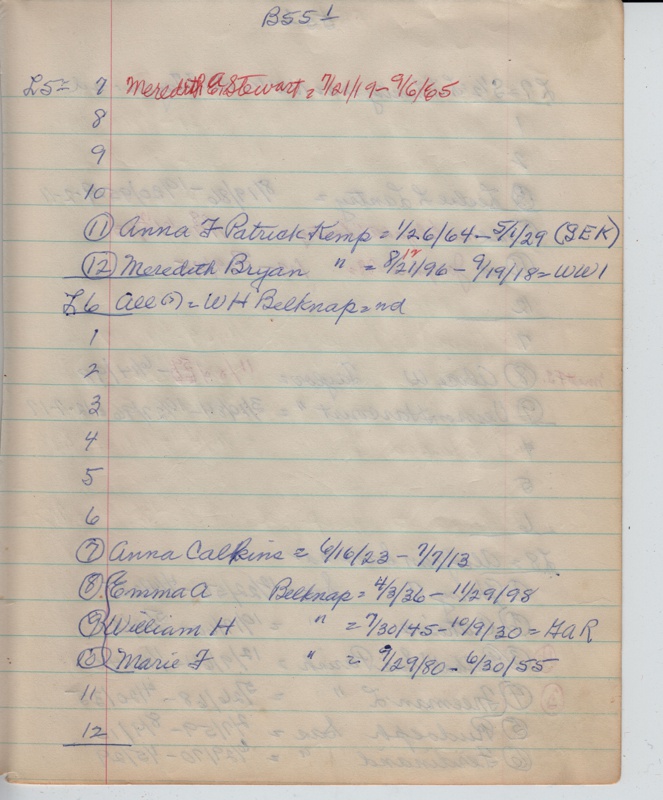 B55 1
L5= 7 Meredith G Stewart = 7/21/19 - 9/6/65
8
9
10
11 Anna F Patrick Kemp = 1/26/64 - 5/1/29 (GEK)
12 Meredith Bryan " = 8/21/96 - 9/19/18 = WW1
12
L6 All (?) = WH Belknap = nd
1
2
3
4
5
6
7 Anna Calkins = 6/16/23 - 7/7/13
8 Emma A Belknap = 4/3/36 - 11/29/98
9 William H " = 7/30/45 - 10/9/30 = GAR
10 Marie F " = 9/29/80 - 6/30/55
11
12